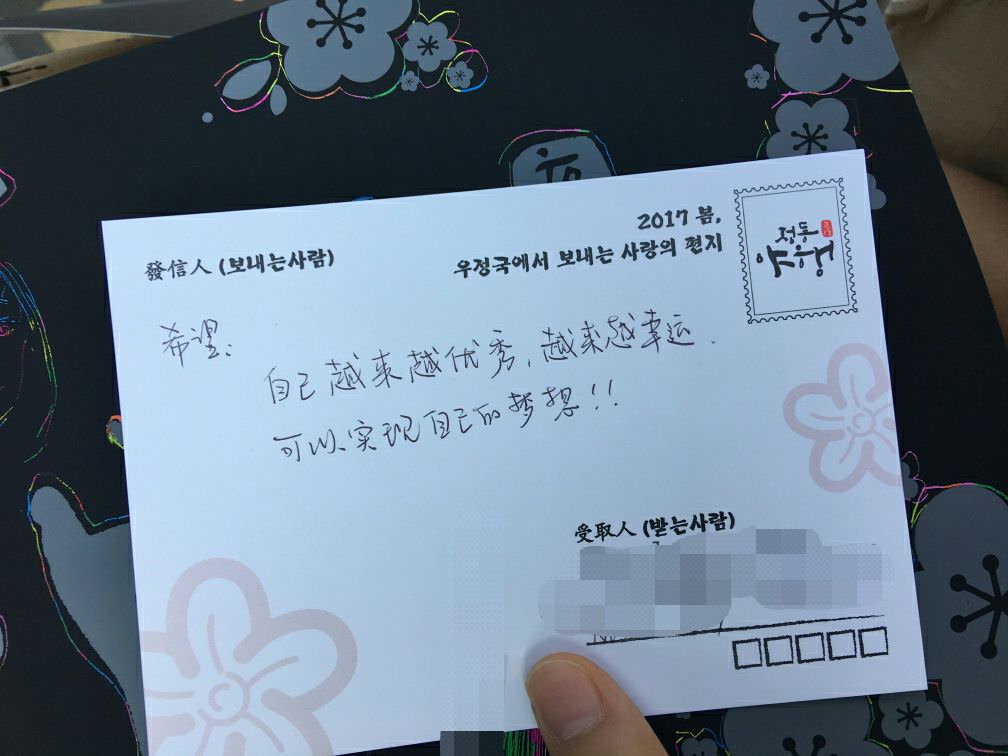 2017 봄,
우정국에서 보내는 사랑의 편지
發信人 (보내는사람)
정동
希望:
自己越来越优秀,越来越幸运.
可以实现自己的梦想!!
受取人 (받는사람)